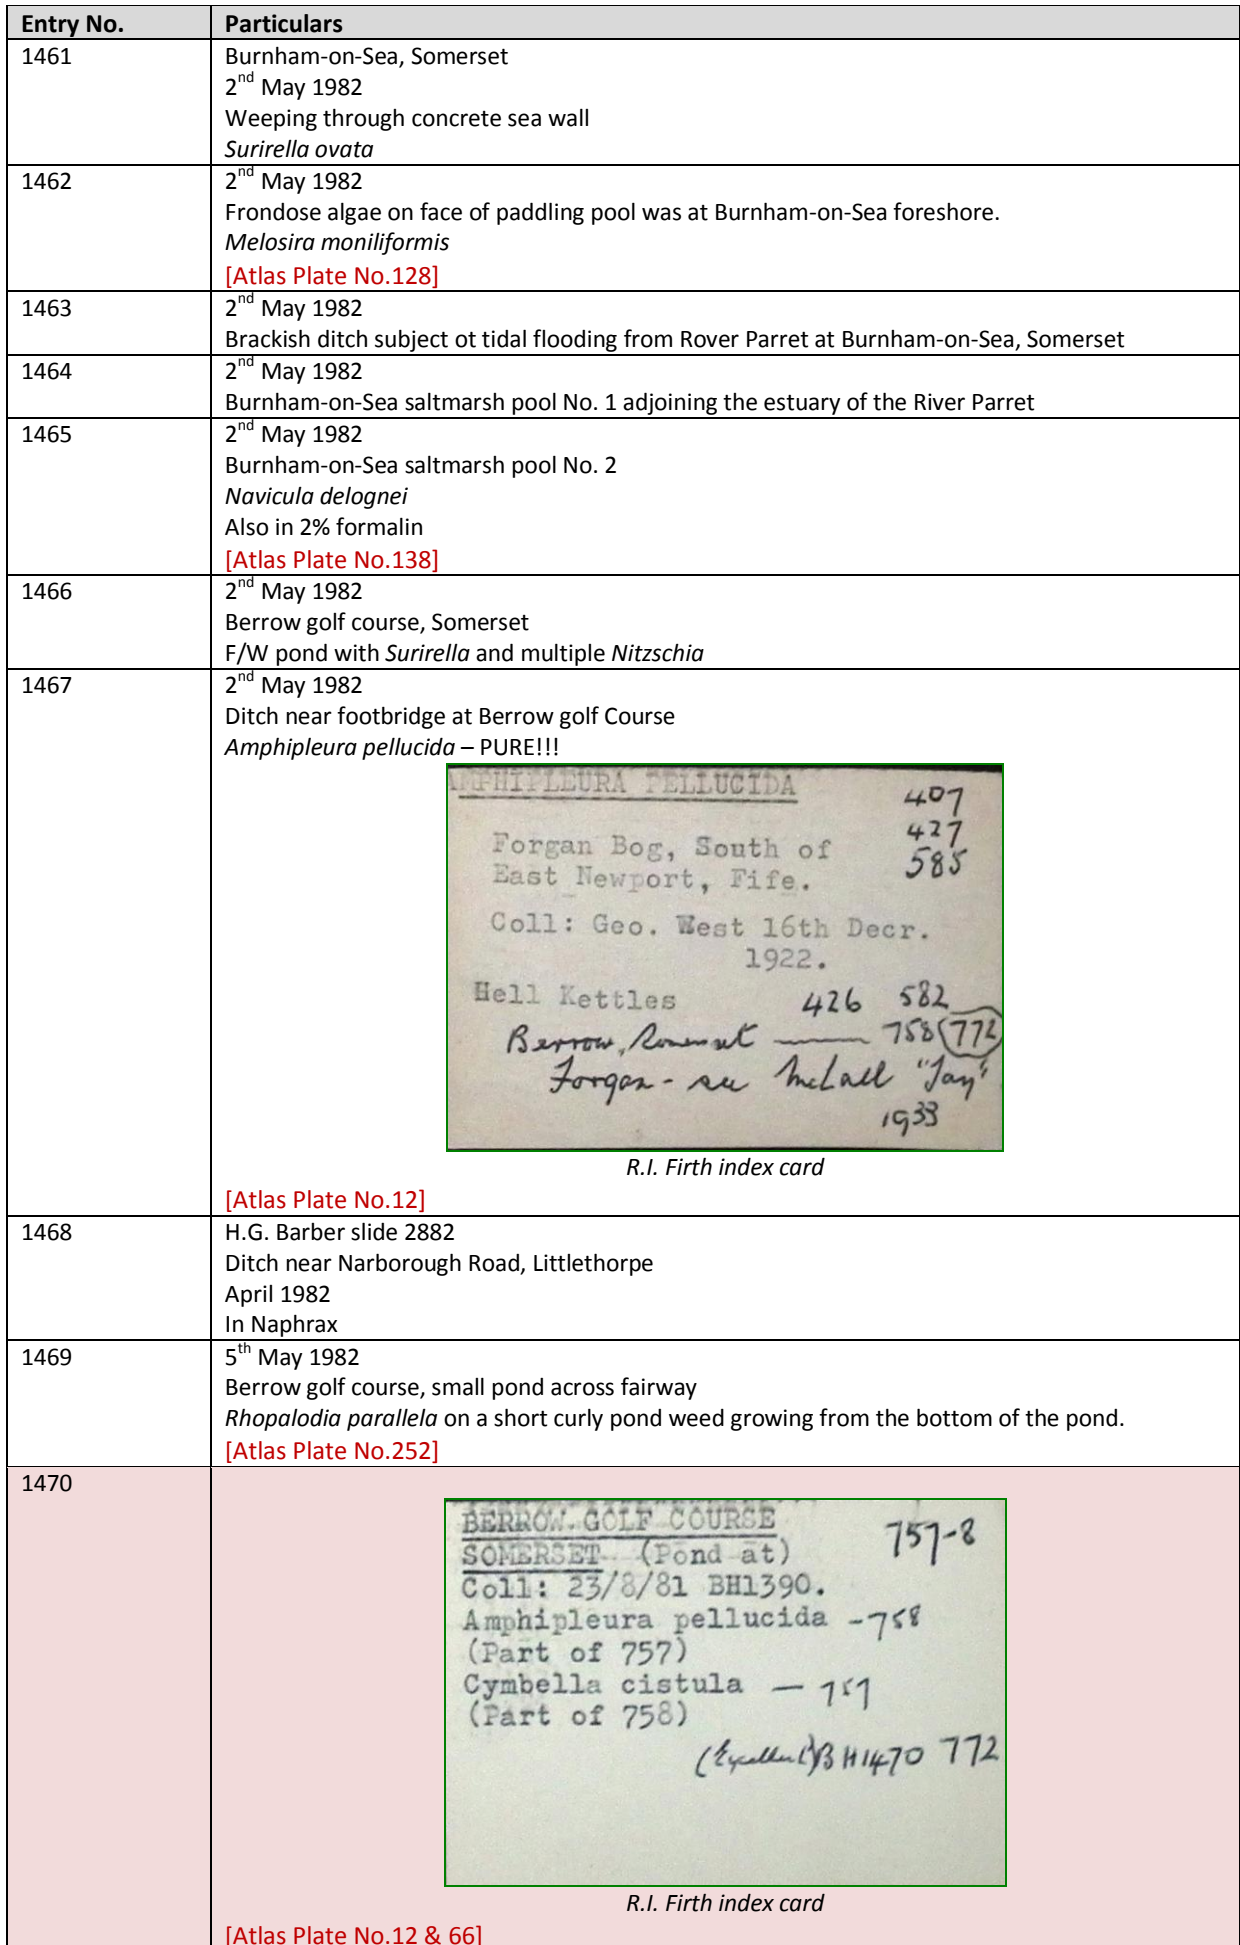 Entry No. Particulars
1461 Burnham-on-Sea, Somerset
2nd May 1982
Weeping through concrete sea wall
Surirella ovata
1462 2nd May 1982
Frondose algae on face of paddling pool was at Burnham-on-Sea foreshore.
Melosira moniliformis
[Atlas Plate No.128]
1463 2nd May 1982
Brackish ditch subject ot tidal flooding from Rover Parret at Burnham-on-Sea, Somerset
1464 2nd May 1982
Burnham-on-Sea saltmarsh pool No. 1 adjoining the estuary of the River Parret
1465 2nd May 1982
Burnham-on-Sea saltmarsh pool No. 2
Navicula delognei
Also in 2% formalin
[Atlas Plate No.138]
1466 2nd May 1982
Berrow golf course, Somerset
F/W pond with Surirella and multiple Nitzschia
1467 2nd May 1982
Ditch near footbridge at Berrow golf Course
Amphipleura pellucida – PURE!!!
AMPHIPLEURA PELLUCIDA 407
427
Forgan Bog, South of 585
East Newport, Fife.
Coll: Geo. West 16th Decr.
1922.
Hell Kettles 426 582
Berrow, Somerset — 758 772
Forgan - see "Jay"
1933
R.I. Firth index card
[Atlas Plate No.12]
1468 H.G. Barber slide 2882
Ditch near Narborough Road, Littlethorpe
April 1982
In Naphrax
1469 5th May 1982
Berrow golf course, small pond across fairway
Rhopalodia parallela on a short curly pond weed growing from the bottom of the pond.
[Atlas Plate No.252]
1470
BERROW GOLF COURSE 757-8
SOMERSET (Pond at)
Coll: 23/8/81 BH1390.
Amphipleura pellucida - 758
(Part of 757)
Cymbella cistula — 757
(Part of 758)
(Excellent) BH1470 772
R.I. Firth index card
[Atlas Plate No.12 & 66]